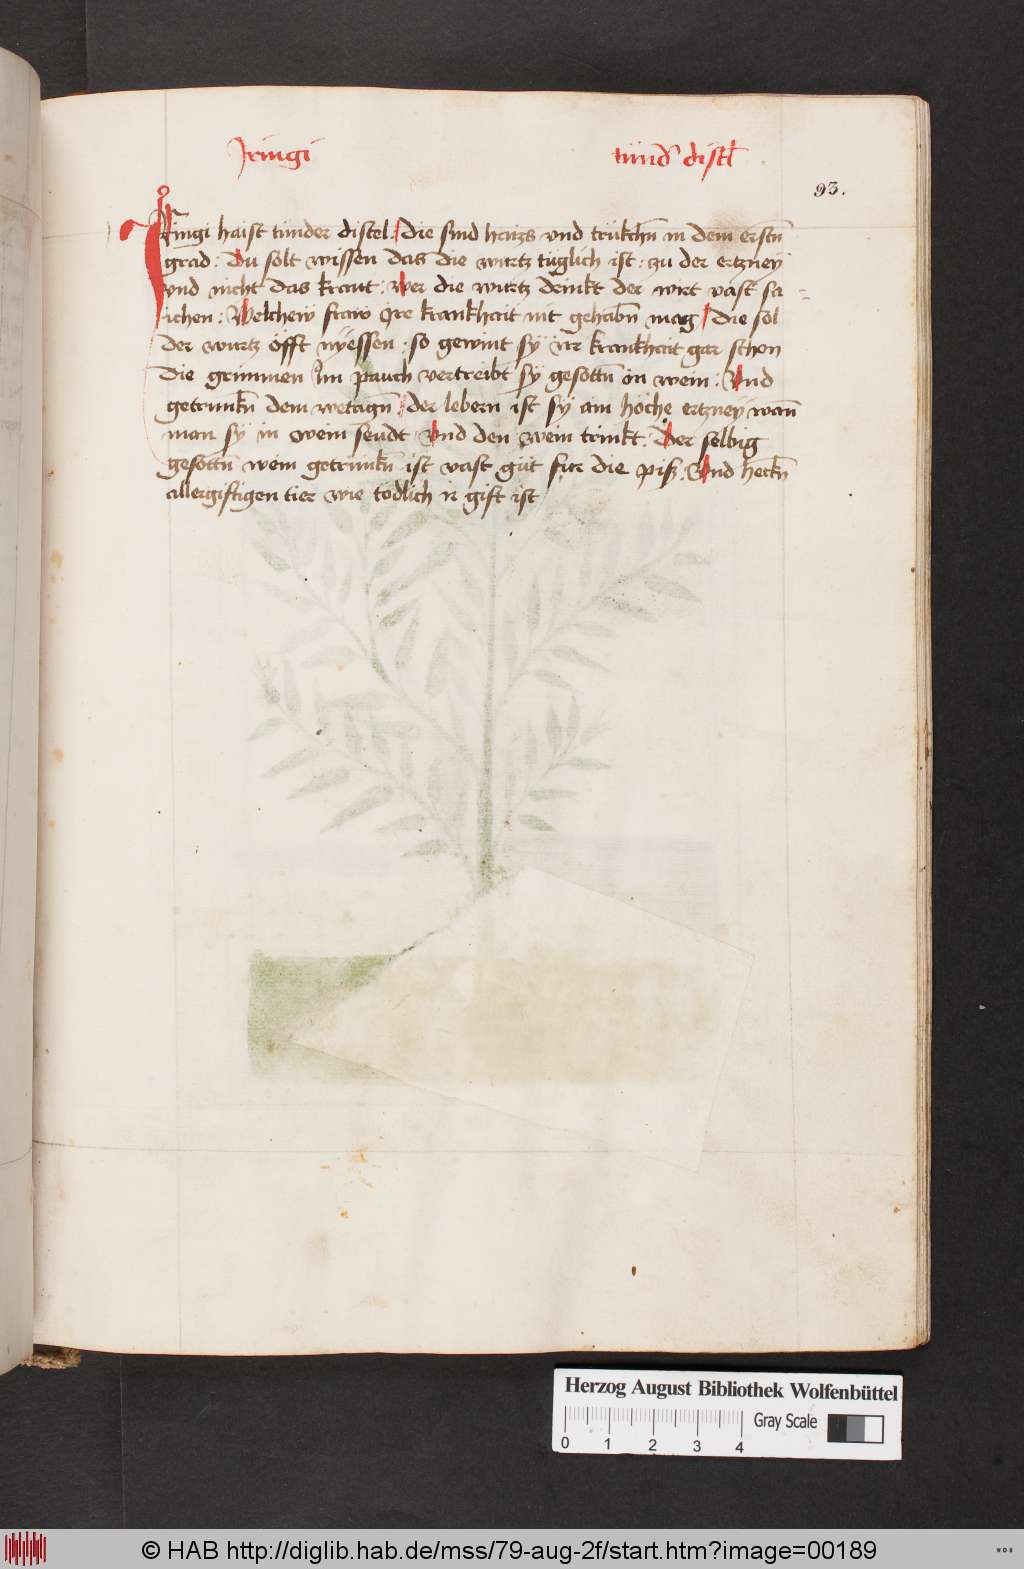 Jringi tund' distl
93.
IRingi haist tunder distel / die sind haizs vnd trükchn in dem erstn
grad : Du solt wissen das die wurtz tüglich ist : zu der ertzney
vnd nicht das kraut : wer die wurtz drinkt der wirt vast sa
ichen : Welchew fraw Ire krankhait nit gehabn mag / die sol
der wurtz öfft nyessen : so gewint sy Ir krankhait gar schon
die grimmen Im pauch vertreibt sy gesottn in wein : Vnd
getrunkn dem wetagn / der lebern ist sy ain höche ertzney wan
man sy in wein seudt Vnd den wein trinkt : Der selbig
gesottn wein getrunkn ist vast güt für die piss : Vnd heckn
allergiftigen tier wie tödlich ir gift ist
Herzog August Bibliothek Wolfenbüttel
Gray Scale
0 1 2 3 4
© HAB http://diglib.hab.de/mss/79-aug-2f/start.htm?image=00189